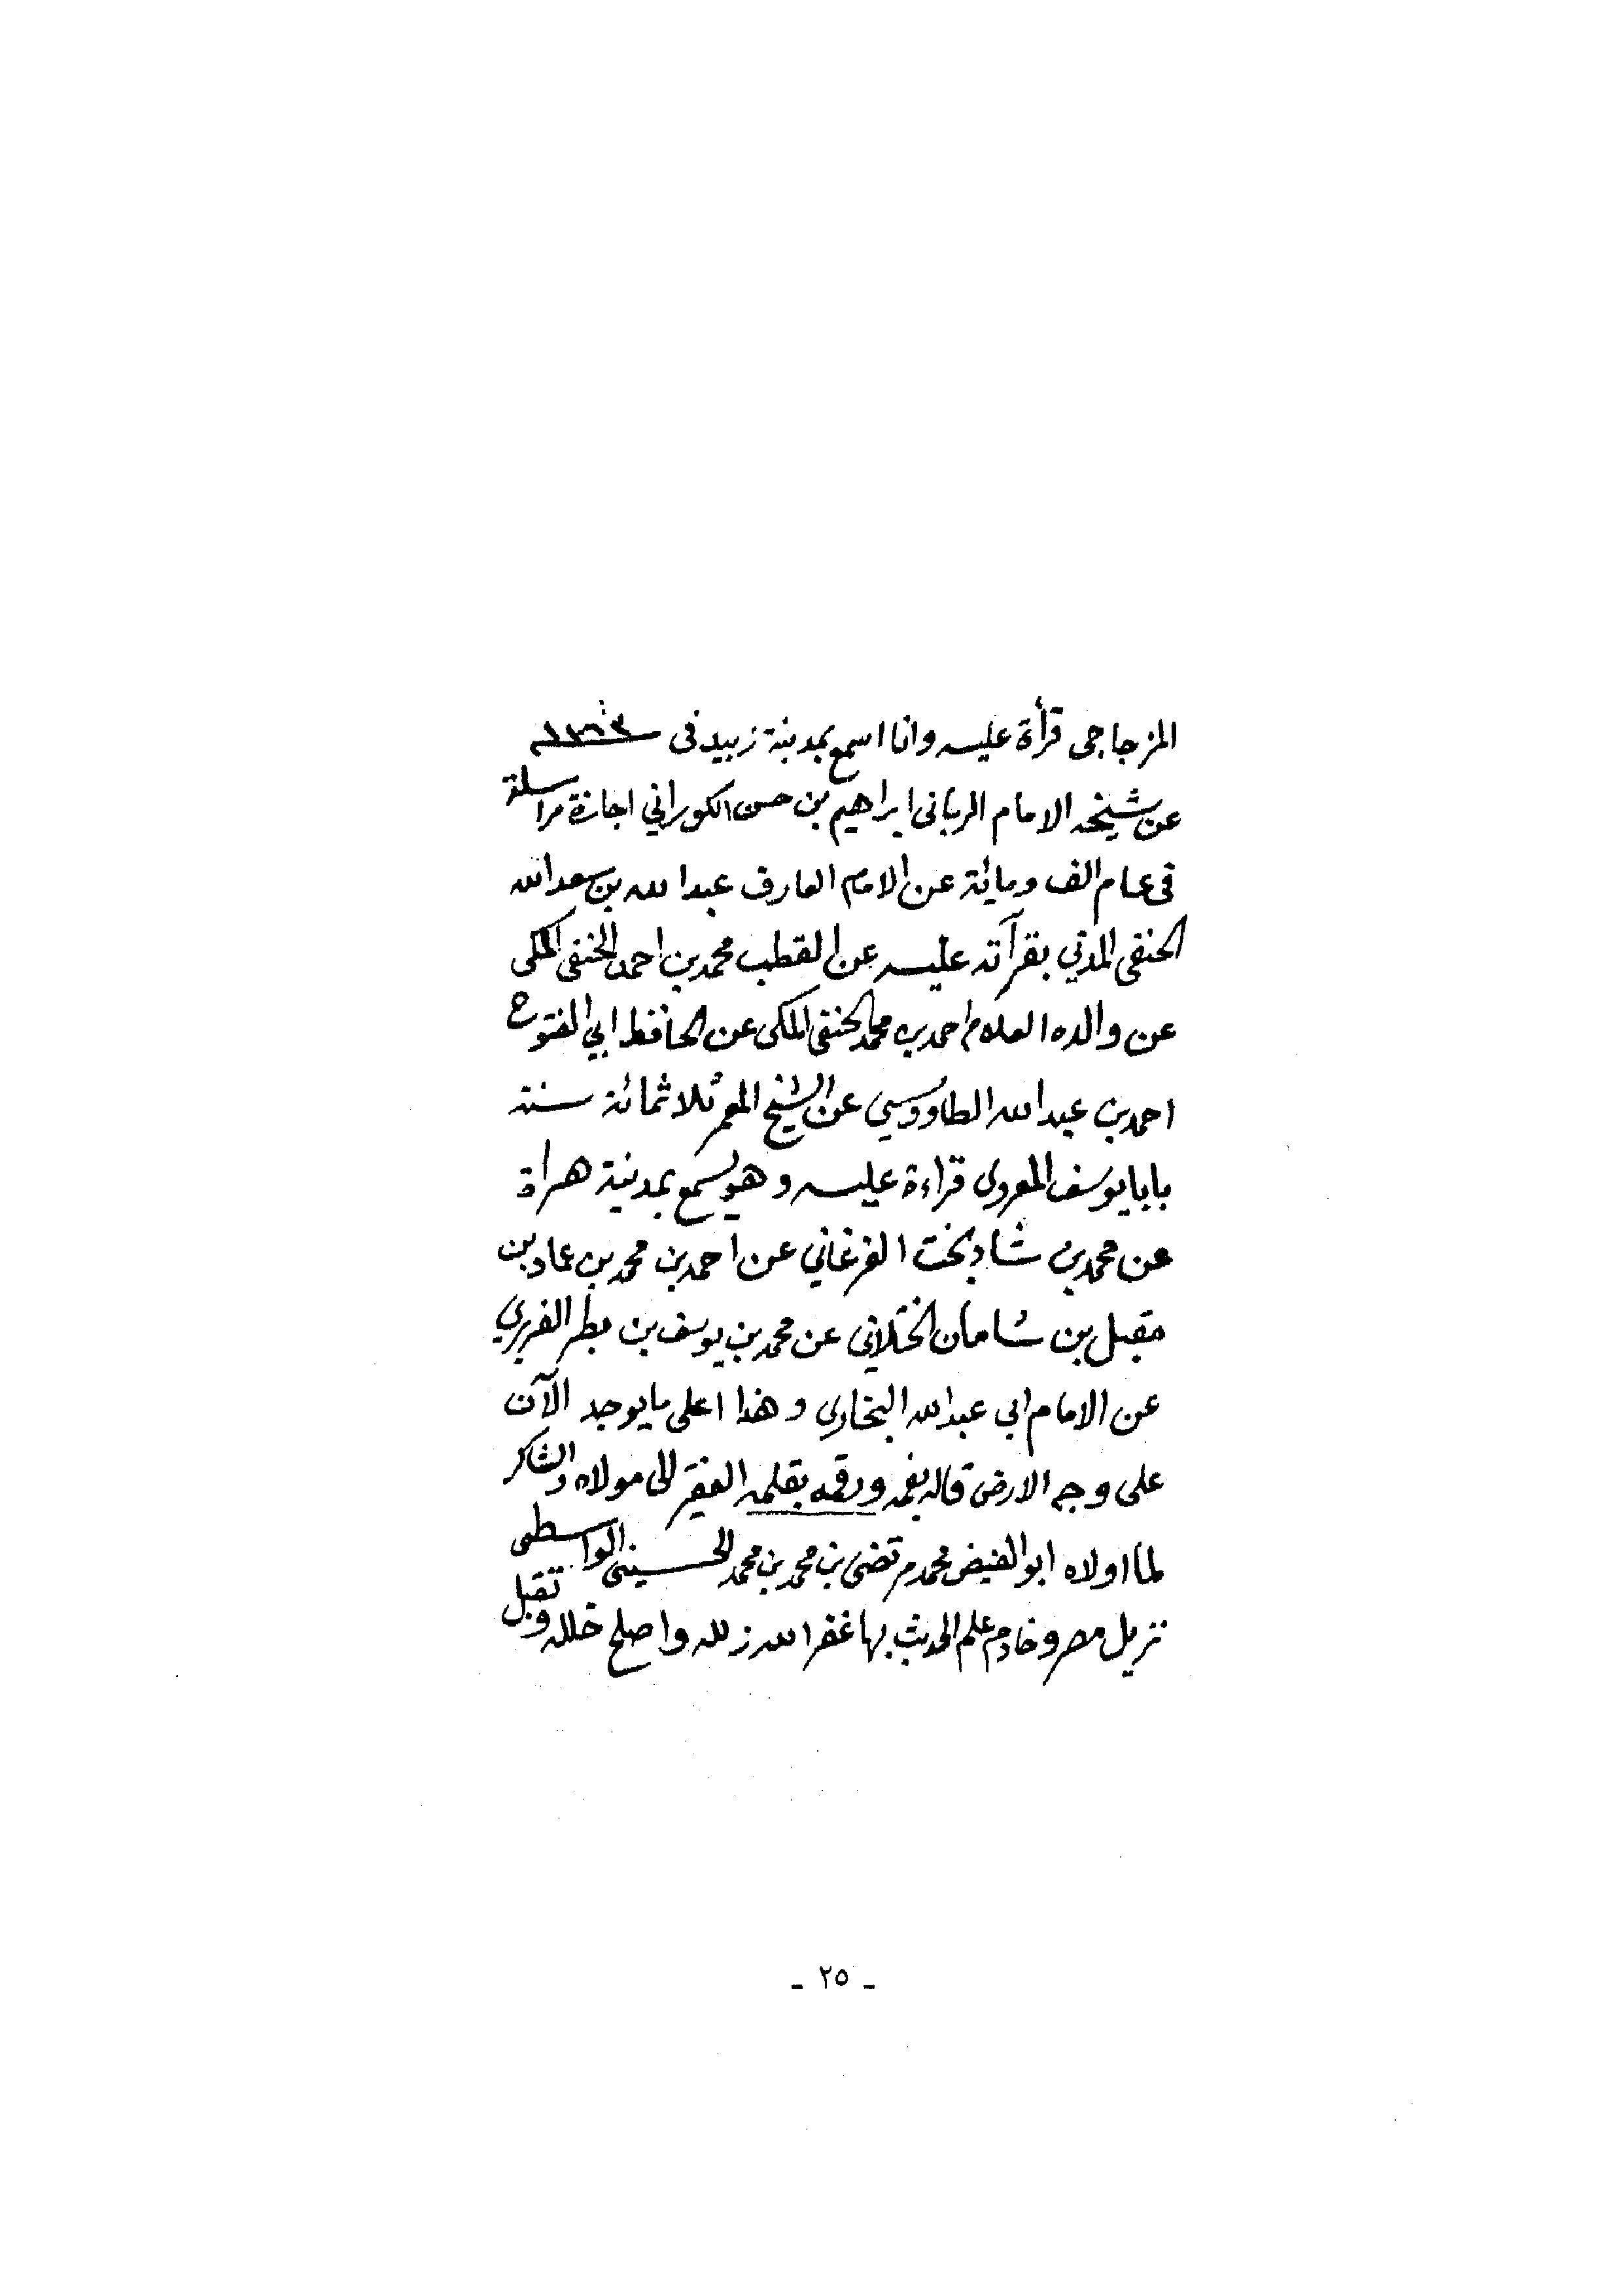 المزجاجى قرأة عليه وانا اسمع بمدينة زبيد فى
عن شيخه الامام الربانى ابراهيم بن حسن الكوراني اجازة مراسلة
فى عام الف ومائة عن الامام العارف عبد الله بن سعد الله
الحنفى المدني بقرآته عليه عن القطب محمد بن احمد الحنفى المكى
عن والده العلام احمد بن محمد الحنفى المكى عن الحافظ ابي الفتوح
احمد بن عبد الله الطاووسي عن الشيخ المعمر ثلاثمائة سنة
بابا يوسف الهروى قراءة عليه وهو يسمع بمدينة هراة
عن محمد بن شاد بخت الفرغاني عن احمد بن محمد بن عماد بن
مقبل بن شاهان الختلانى عن محمد بن يوسف بن مطر الفربري
عن الامام ابى عبد الله البخارى وهذا اعلى ما يوجد الآن
على وجه الارض قاله بفمه ورقمه بقلمه الفقير الى مولاه والشاكر
لما اولاه ابو الفيض محمد مرتضى بن محمد بن محمد الحسينى الواسطى
نزيل مصر وخادم علم الحديث بها غفر الله زلله واصلح خلله وتقبل
- ٢٥ -